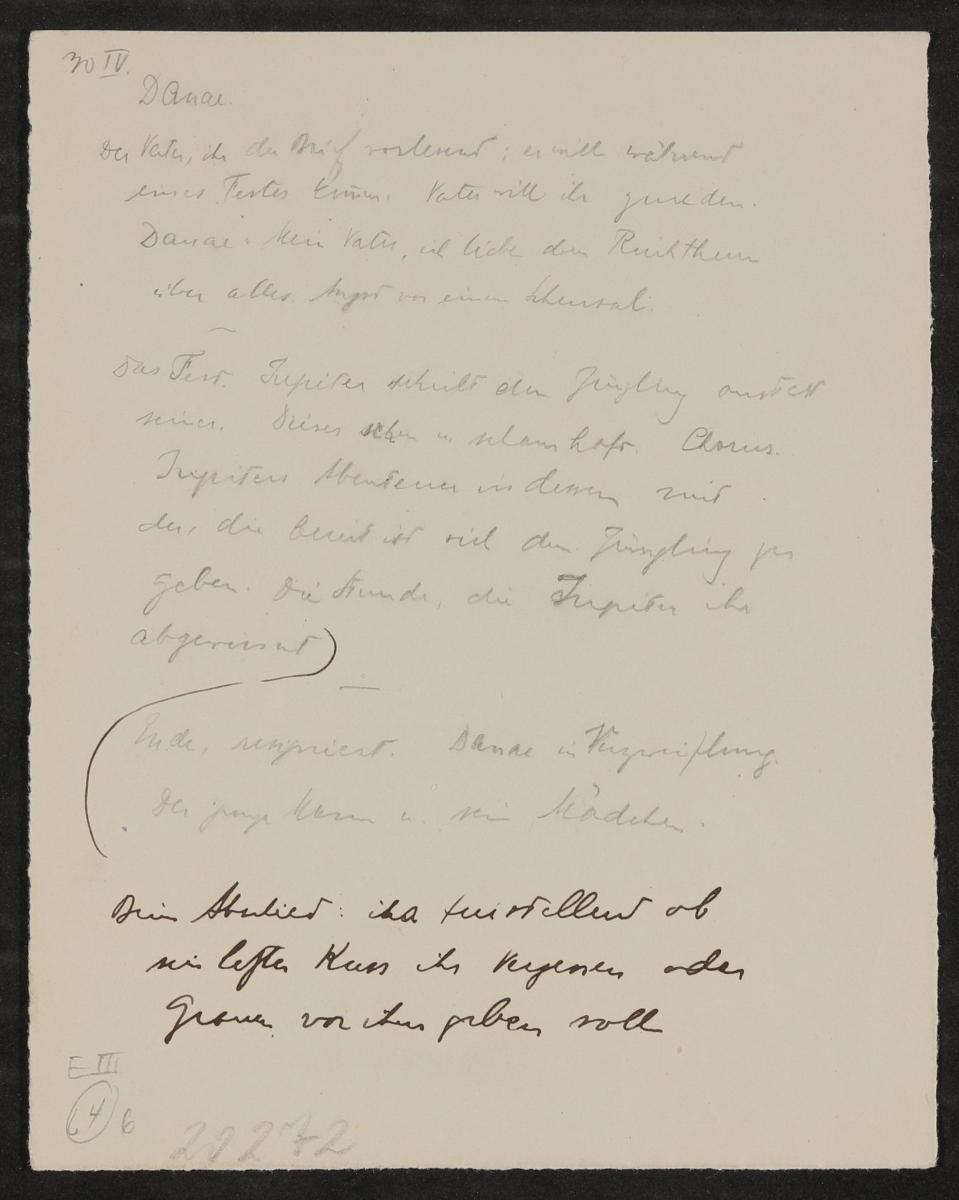 30 IV.
Danae.
Der Vater, ihr den Brief vorlesend: er will während
eines Festes komm. Vater will ihr zureden.
Danae: Mein Vater, ich liebe den Reichthum
über alles. Angst vor einem Scheusal.
Das Fest. Jupiter schickt den Jüngling anstatt
seiner. Dieser schön u schamhaft. Chorus.
Jupiters Abenteuer indessen mit
der, die bereit ist sich dem Jüngling zu
geben. Die Stunde, die Jupiter ihr
Ende, resigniert. Danae in Verzweiflung.
Der junge Mann u. sein Mädchen.
Beim Abschied: ihr freistellend ob
sein letzter Kuss ihr Vergessen oder
Grauen vor ihm geben soll
E III
4 6
20272